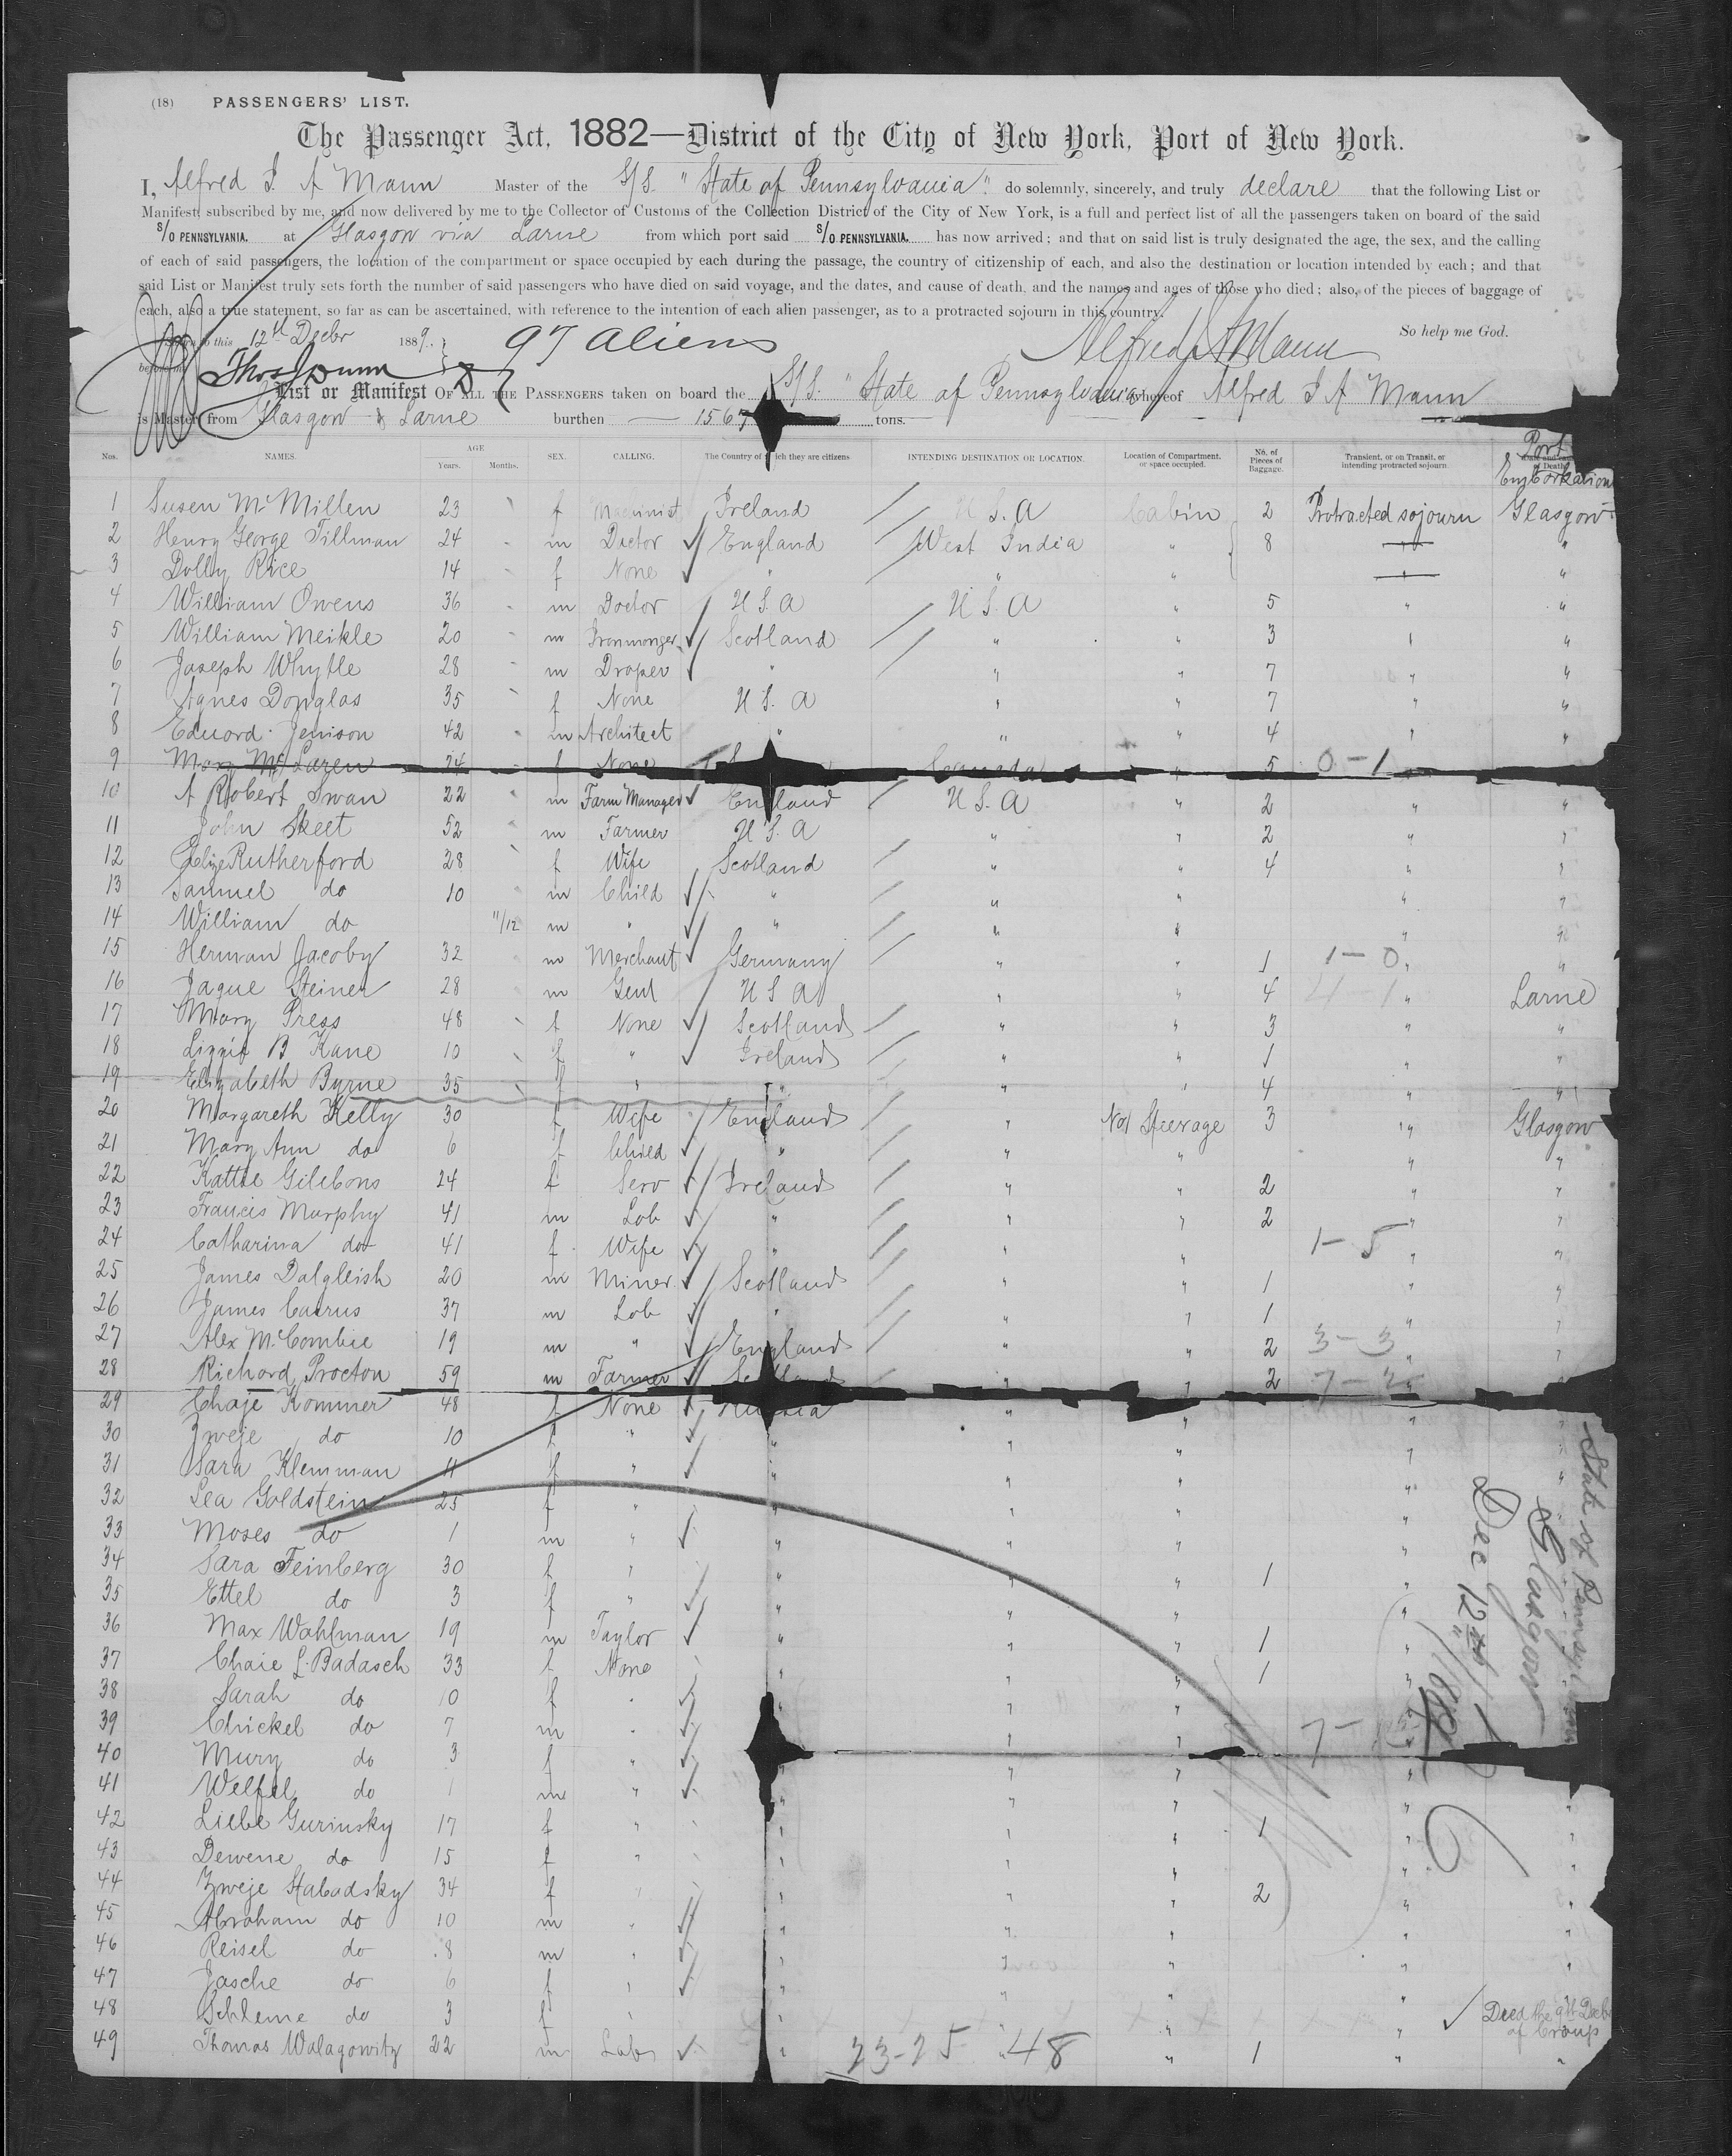 (18) PASSENGERS' LIST.
The Passenger Act, 1882—District of the City of New York, Port of New York.
I, Alfred J. A Mann Master of the S/S. "State of Pennsylvania". do solemnly, sincerely, and truly declare that the following List or
Manifest, subscribed by me, and now delivered by me to the Collector of Customs of the Collection District of the City of New York, is a full and perfect list of all the passengers taken on board of the said
S/O PENNSYLVANIA. at Glasgow via Larne from which port said S/O PENNSYLVANIA. has now arrived; and that on said list is truly designated the age, the sex, and the calling
of each of said passengers, the location of the compartment or space occupied by each during the passage, the country of citizenship of each, and also the destination or location intended by each; and that
said List or Manifest truly sets forth the number of said passengers who have died on said voyage, and the dates, and cause of death, and the names and ages of those who died; also, of the pieces of baggage of
each, also a true statement, so far as can be ascertained, with reference to the intention of each alien passenger, as to a protracted sojourn in this country.
to this 12th Decbr 1889. 97 Aliens Alfred J A Mann So help me God.
before me
List or Manifest OF ALL THE PASSENGERS taken on board the S/S. "State of Pennsylvania" whereof Alfred J A Mann
is Master, from Glasgow & Larne burthen 1567 tons.
Nos. NAMES. AGE Years. Months. SEX. CALLING. The Country of which they are citizens INTENDING DESTINATION OR LOCATION. Location of Compartment, or space occupied. No. of Pieces of Baggage. Transient, or on Transit, or intending protracted sojourn. Port Embarkation
1 Susen Mc Millen 23 f Machinist Ireland U S. A Cabin 2 Protracted sojourn Glasgow
2 Henry George Tillman 24 m Doctor England West India " 8 " "
3 Dolly Rice 14 f None " " " " "
4 William Owens 36 m Doctor U S. A U S. A " 5 " "
5 William Meikle 20 m Ironmonger Scotland " " 3 " "
6 Joseph Whytle 28 m Draper " " " 7 " "
7 Agnes Douglas 35 f None U S. A " " 7 " "
8 Eduard Jenison 42 m Architect " " " 4 " "
9 Mary McLaren 24 f None Canada " 5 0-1
10 A Robert Swan 22 m Farm Manager England U S. A " 2 " "
11 John Skeet 52 m Farmer U S. A " " 2 " "
12 Elize Rutherford 28 f Wife Scotland " " 4 " "
13 Samuel do 10 m Child " " " " "
14 William do 11/12 m " " " " " "
15 Herman Jacoby 32 m Merchant Germany " " 1 1-0 " "
16 Jaque Steiner 28 m Gent U S A " " 4 4-1 " Larne
17 Mary Press 48 f None Scotland " " 3 " "
18 Lizzie B Kane 10 f " Ireland " " 1 " "
19 Elizabeth Byrne 35 f " " " " 4 " "
20 Margareth Kelly 30 f Wife England " No1 Steerage 3 " Glasgow
21 Mary Ann do 6 f Child " " " " "
22 Kattie Gilebons 24 f Serv Ireland " " 2 " "
23 Francis Murphy 41 m Lab " " " 2 " "
24 Catharina do 41 f Wife " " " 1-5 " "
25 James Dalgleish 20 m Miner Scotland " " 1 " "
26 James Cairus 37 m Lab " " " 1 " "
27 Alex McCombie 19 m " England " " 2 3-3 " "
28 Richard Procton 59 m Farmer Scotland " " 2 "
29 Chaje Kommer 48 f None Russia " " "
30 Zweje do 10 f " " " " "
31 Sara Klemman 11 f " " " " "
32 Lea Goldstein 25 f " " " " "
33 Moses do 1 m " " " " "
34 Sara Feinberg 30 f " " " " 1 "
35 Ettel do 3 f " " " " "
36 Max Wahlman 19 m Taylor " " " 1 "
37 Chaie L. Badasch 33 f None " " " 1 "
38 Sarah do 10 f " " " " "
39 Chickel do 7 m " " " " "
40 Mury do 3 f " " " " "
41 Welfel do 1 m " " " " "
42 Liebe Gurinsky 17 f " " " " 1 " "
43 Dewene do 15 f " " " " " "
44 Zweje Stabadsky 34 f " " " " 2 " "
45 Abraham do 10 m " " " " " "
46 Reisel do 8 m " " " " " "
47 Jasche do 6 f " " " " " "
48 Schleme do 3 f " " " " " Died the 9th Decbr of Croup
49 Thomas Walagowitz 22 m Lab " 23-25 " 48 " 1 " "
State of Pennsylvania
Glasgow
Dec 12th 1889